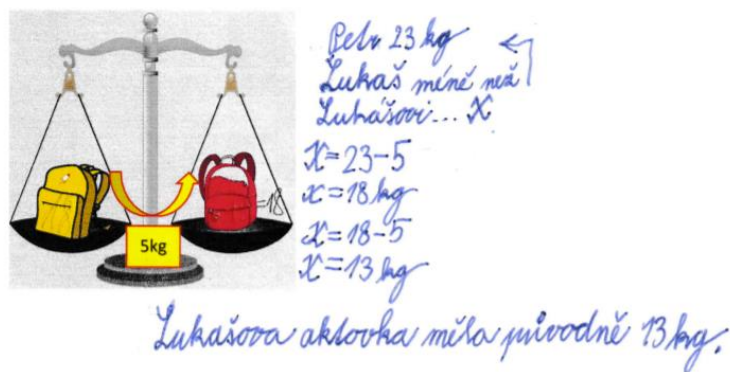 Petr 23 kg
Lukáš méně než
Lukášovi... X
X = 23-5
x = 18 kg
=18
X = 18-5
5kg
X = 13 kg
Lukášova aktovka měla původně 13 kg.